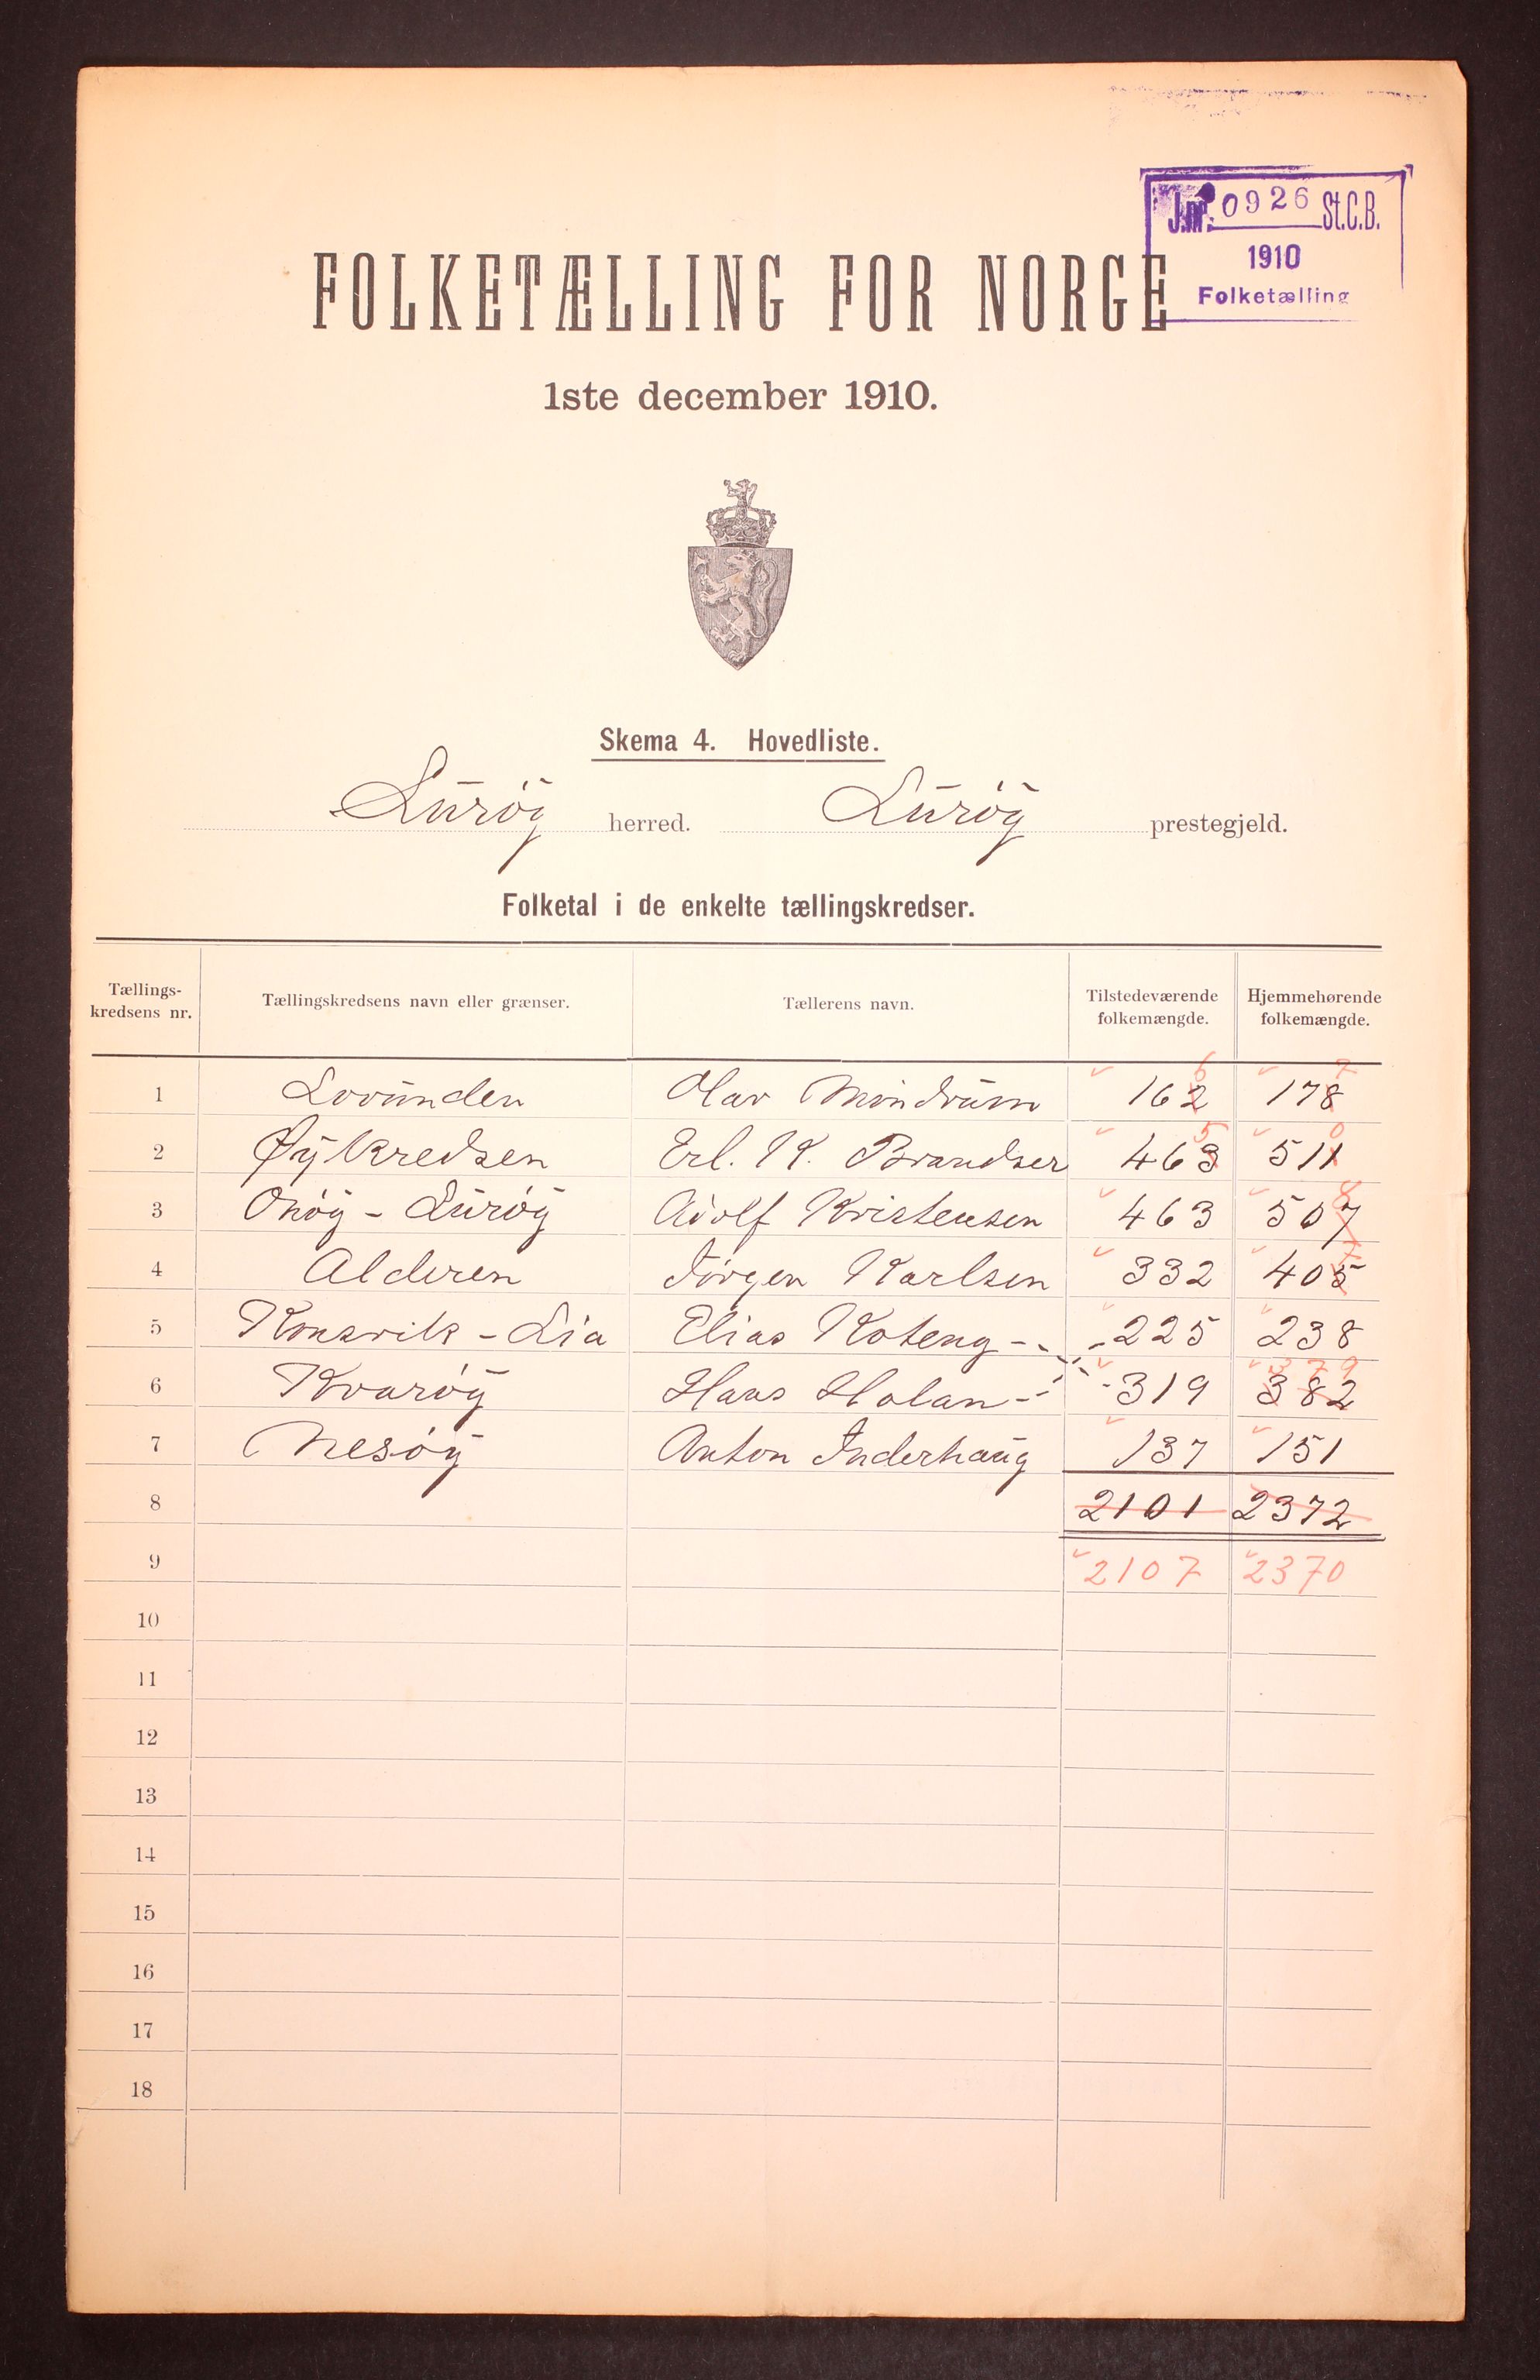 J.nr. 0926 St.C.B.
1910
Folketælling
FOLKETÆLLING FOR NORGE
1ste december 1910.
Skema 4. Hovedliste.
Lurøy herred. Lurøy prestegjeld.
Folketal i de enkelte tællingskredser.
Tællings-kredsens nr. Tællingskredsens navn eller grænser. Tællerens navn. Tilstedeværende folkemængde. Hjemmehørende folkemængde.
1 Lovunden Olav Mindrum 162 6 178 7
2 Øykredsen Erl. K. Brandser 463 5 511 0
3 Onøy - Lurøy Adolf Kristensen 463 507 8
4 Alderen Jørgen Karlsen 332 405 7
5 Konsvik - Lia Elias Koteng - 225 238
6 Kvarøy Hans Holan - 319 382 379
7 Nesøy Anton Inderhaug 137 151
8 2101 2372
9 2107 2370
10
11
12
13
14
15
16
17
18